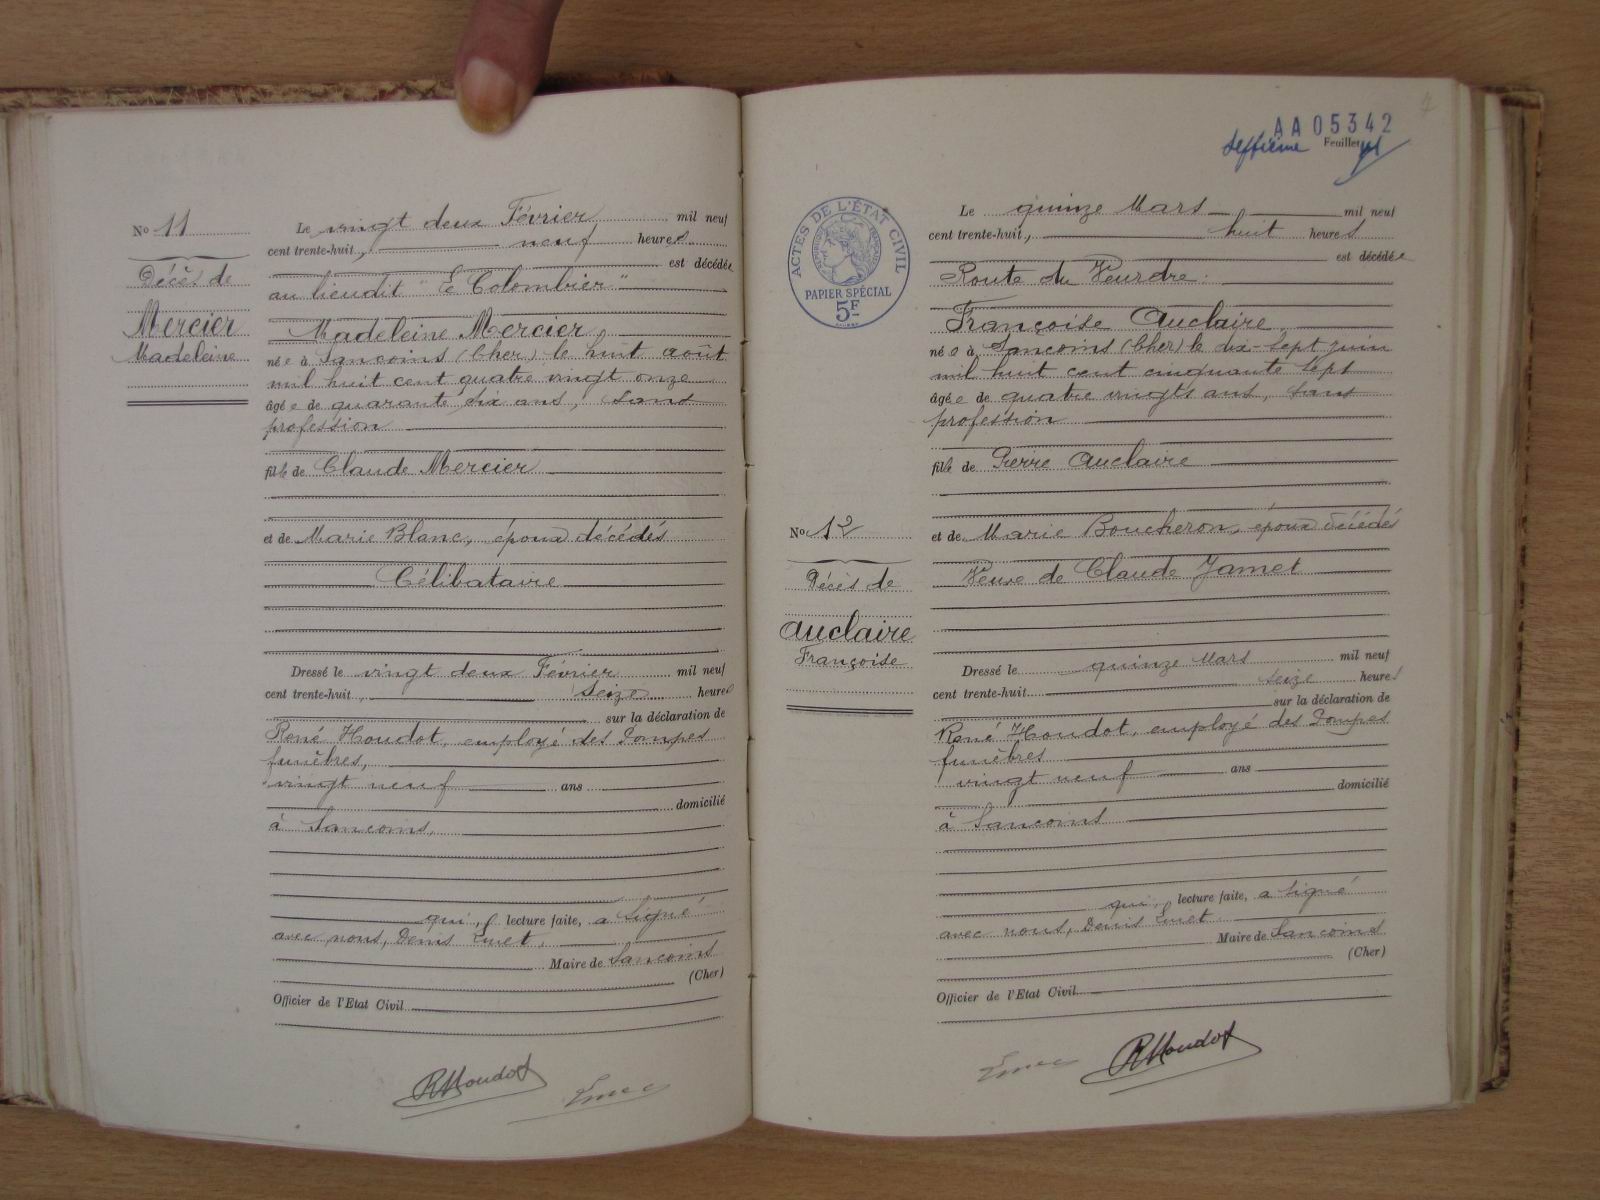 No 11
Décès de
Mercier
Madeleine
Le vingt deux Février mil neuf
cent trente-huit, neuf heures
est décédée
au lieudit "Le Colombier"
Madeleine Mercier,
née à Sancoins (Cher) le huit août
mil huit cent quatre vingt onze
âgée de quarante six ans, sans
profession
fille de Claude Mercier
et de Marie Blanc, époux décédés
Célibataire
Dressé le vingt deux Février mil neuf
cent trente-huit, seize heures
sur la déclaration de
René Houdot, employé des Pompes
funèbres,
vingt neuf ans
domicilié
à Sancoins,
qui, lecture faite, a signé
avec nous, Denis
Maire de Sancoins
(Cher)
Officier de l'Etat Civil
RHoudot
AA05342
septième Feuillet
ACTES DE L'ÉTAT CIVIL
PAPIER SPÉCIAL
5F
No 12
Décès de
Auclaire
Françoise
Le quinze Mars mil neuf
cent trente-huit, huit heures
est décédée
Route du Veurdre.
Françoise Auclaire,
née à Sancoins (Cher) le dix-sept juin
mil huit cent cinquante sept
âgée de quatre vingts ans, sans
profession
fille de Pierre Auclaire
et de Marie Boucheron, époux décédés
Veuve de Claude Jamet
Dressé le quinze Mars mil neuf
cent trente-huit seize heures
sur la déclaration de
René Houdot, employé des Pompes
funèbres
vingt neuf ans
domicilié
à Sancoins
qui, lecture faite, a signé
avec nous, Denis
Maire de Sancoins
(Cher)
Officier de l'Etat Civil
RHoudot